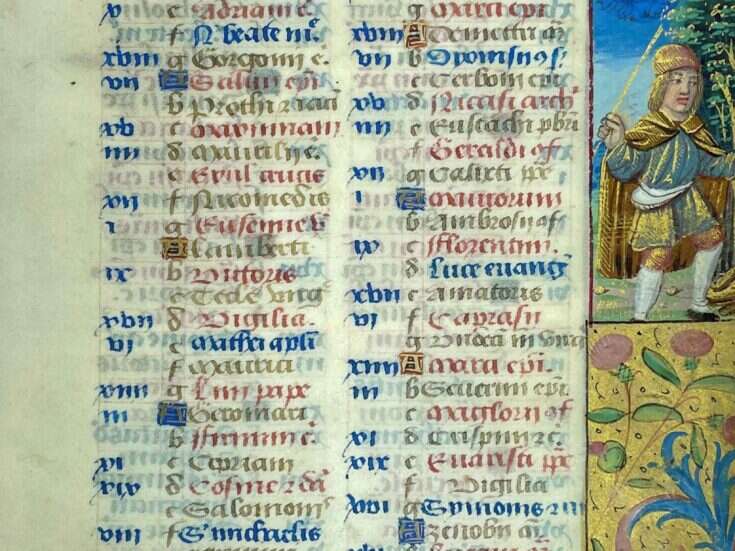 v e Adriani c.
f N beate m.
xviii g Gorgonii c.
vii A Salvii epi
b Prothi z iacin
xv c Maximiani
iiii d Maurilii c.
e Exal crucis
xii f Nicomedis
i g Eufemie v
A Lamberti
ix b Victoris
c Tecle virg
xvii d Vigilia.
vi e Mathei apli
f Mauricii
xiiii g Lini pape
iii A Geromari
b Firmini c.
xi c Cipriani
xix d Cosme z da
e Salomonis
viii f S michaelis
g Marci epi
xviii A Demetrii m
vii b Dyonisii
c Cerbonii epi
xv d Nicasii arch
iiii e Eustachi pbri
f Geraldi of
xii g Calixti pp
i A Maurorum
b Ambrosii of
ix c Florentini.
d Luce evang
xvii e Amatoris
vi f Caprasii
g virg
xiiii A epi.
iii b Severini epi
c Maglorii of
xi d Crispini z c.
xix e Evaristi pp
f Vigilia
xvi g Symonis z iu
A Zenobii m